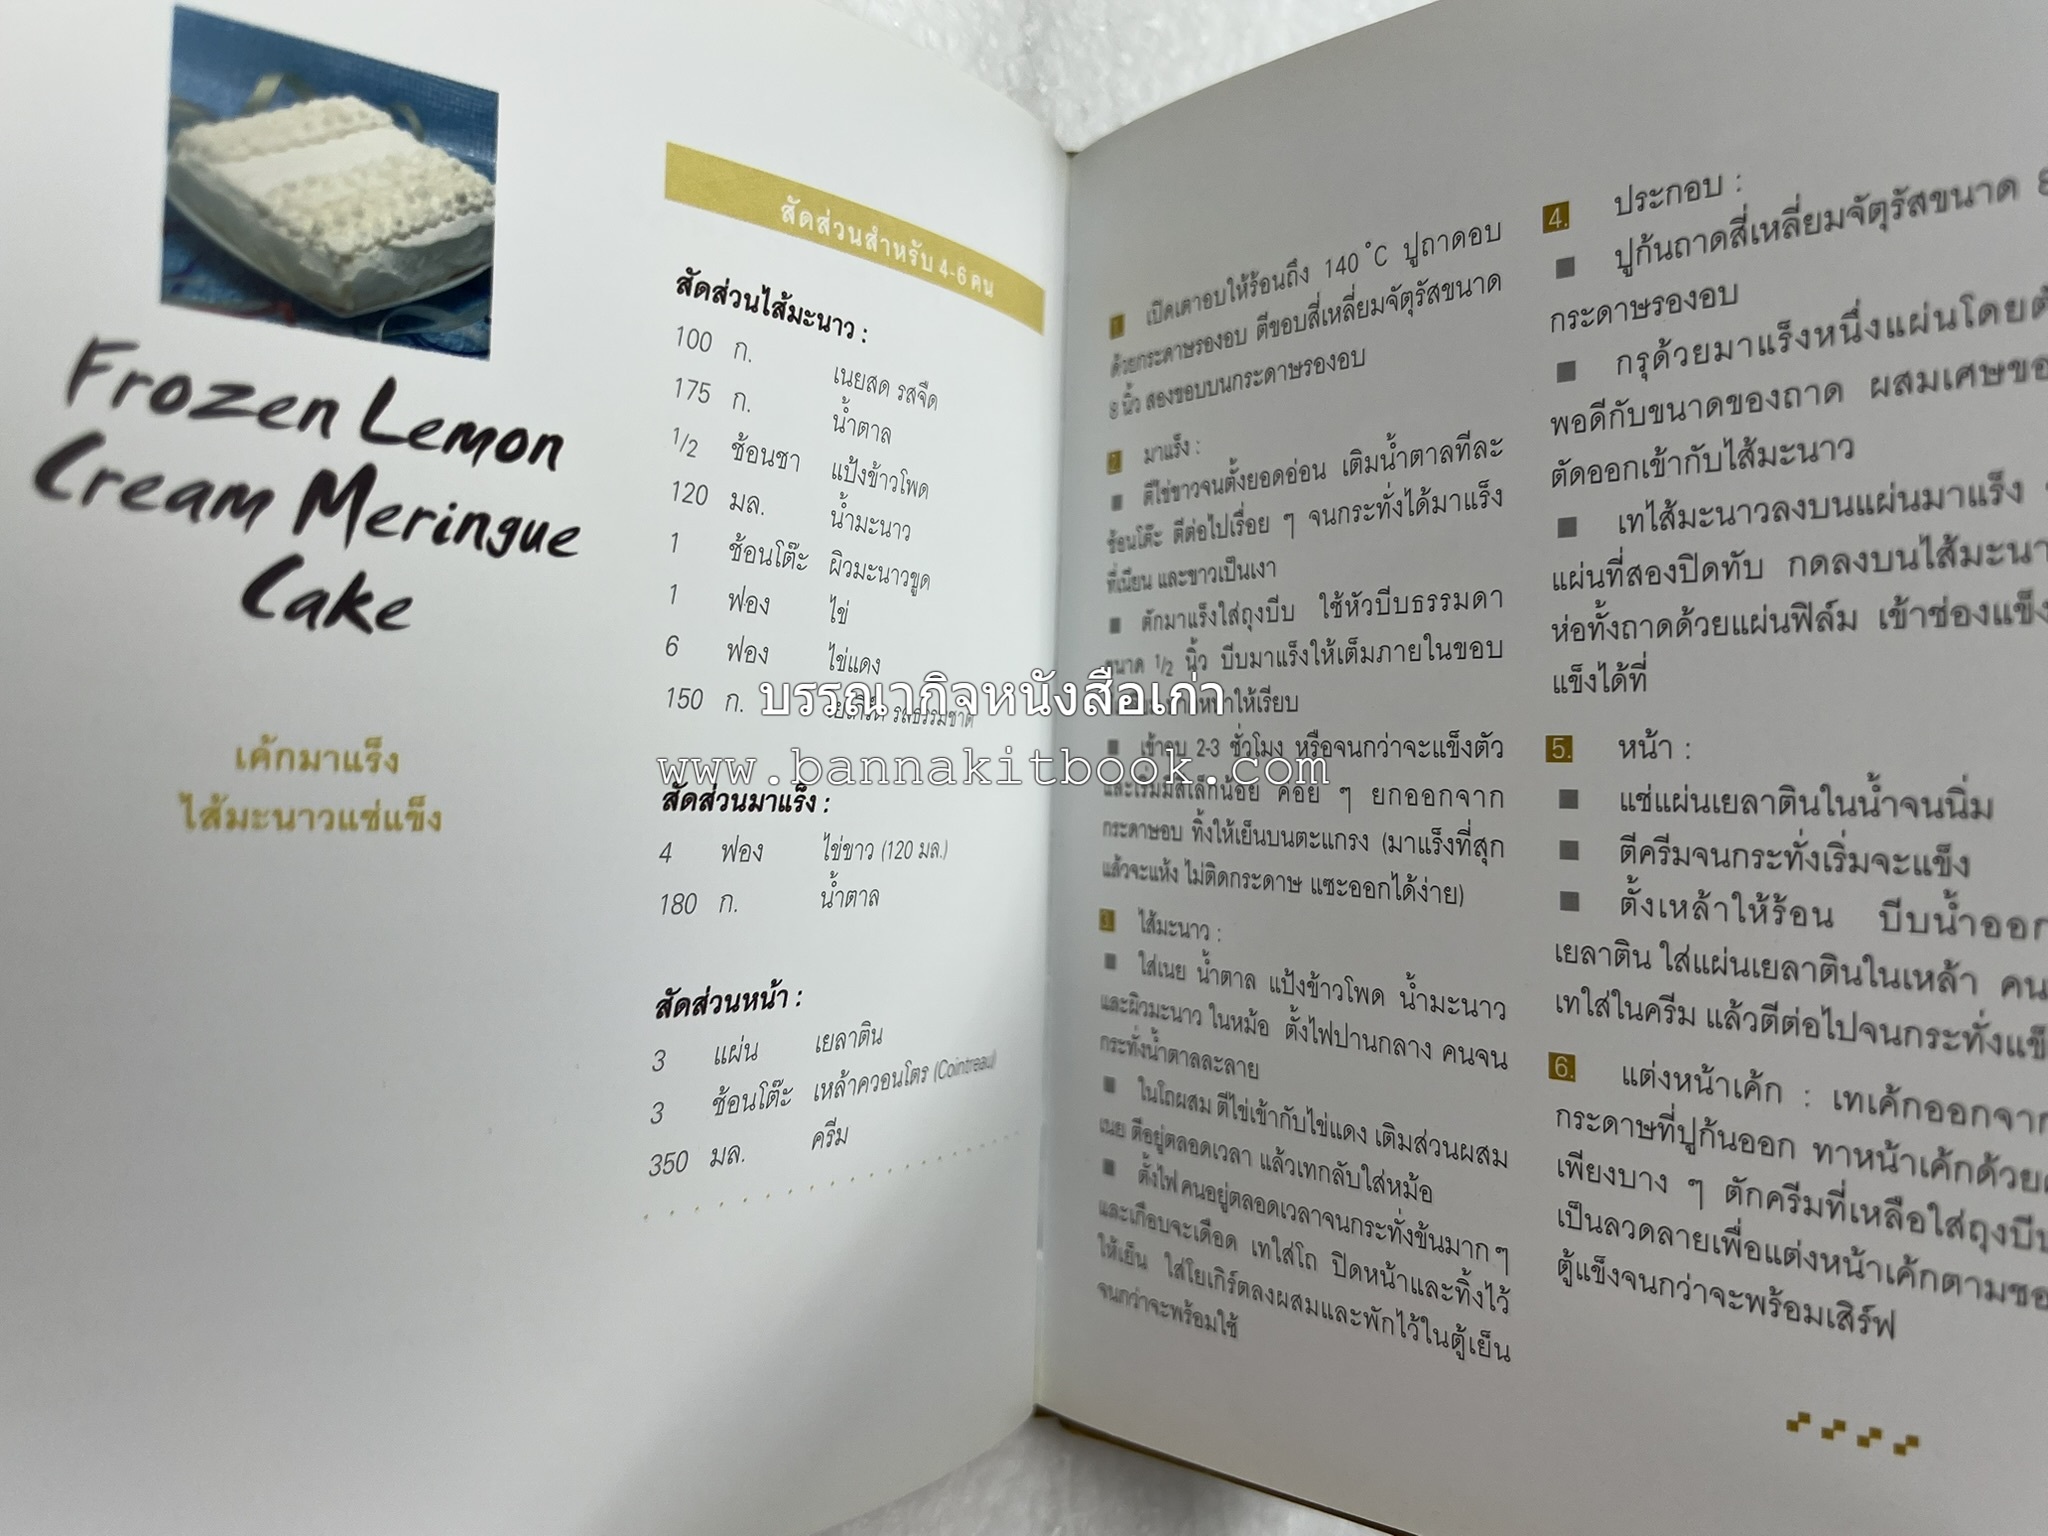 Frozen Lemon
Cream Meringue
Cake
เค้กมาแร็ง
ไส้มะนาวแช่แข็ง
สัดส่วนสำหรับ 4-6 คน
สัดส่วนไส้มะนาว :
100 ก. เนยสด รสจืด
175 ก. น้ำตาล
1/2 ช้อนชา แป้งข้าวโพด
120 มล. น้ำมะนาว
1 ช้อนโต๊ะ ผิวมะนาวขูด
1 ฟอง ไข่
6 ฟอง ไข่แดง
150 ก. รสธรรมชาติ
สัดส่วนมาแร็ง :
4 ฟอง ไข่ขาว (120 มล.)
180 ก. น้ำตาล
สัดส่วนหน้า :
3 แผ่น เยลาติน
3 ช้อนโต๊ะ เหล้าควอนโตร (Cointreau)
350 มล. ครีม
บรรณากิจหนังสือเก่า
www.bannakitbook.com
1. เปิดเตาอบให้ร้อนถึง 140 °C ปูถาดอบ
ด้วยกระดาษรองอบ ตีขอบสี่เหลี่ยมจัตุรัสขนาด
8 นิ้ว สองขอบบนกระดาษรองอบ
2. มาแร็ง :
■ ตีไข่ขาวจนตั้งยอดอ่อน เติมน้ำตาลทีละ
ช้อนโต๊ะ ตีต่อไปเรื่อย ๆ จนกระทั่งได้มาแร็ง
ที่เนียน และขาวเป็นเงา
■ ตักมาแร็งใส่ถุงบีบ ใช้หัวบีบธรรมดา
ขนาด 1/2 นิ้ว บีบมาแร็งให้เต็มภายในขอบ
หน้าให้เรียบ
■ เข้าอบ 2-3 ชั่วโมง หรือจนกว่าจะแข็งตัว
และเริ่มมีสีเล็กน้อย ค่อย ๆ ยกออกจาก
กระดาษอบ ทิ้งให้เย็นบนตะแกรง (มาแร็งที่สุก
แล้วจะแห้ง ไม่ติดกระดาษ แซะออกได้ง่าย)
3. ไส้มะนาว :
■ ใส่เนย น้ำตาล แป้งข้าวโพด น้ำมะนาว
และผิวมะนาว ในหม้อ ตั้งไฟปานกลาง คนจน
กระทั่งน้ำตาลละลาย
■ ในโถผสม ตีไข่เข้ากับไข่แดง เติมส่วนผสม
เนย ตีอยู่ตลอดเวลา แล้วเทกลับใส่หม้อ
■ ตั้งไฟ คนอยู่ตลอดเวลาจนกระทั่งข้นมาก ๆ
และเกือบจะเดือด เทใส่โถ ปิดหน้าและทิ้งไว้
ให้เย็น ใส่โยเกิร์ตลงผสมและพักไว้ในตู้เย็น
จนกว่าจะพร้อมใช้
4. ประกอบ :
■ ปูก้นถาดสี่เหลี่ยมจัตุรัสขนาด 8
กระดาษรองอบ
■ กรุด้วยมาแร็งหนึ่งแผ่นโดย
พอดีกับขนาดของถาด ผสมเศษ
ตัดออกเข้ากับไส้มะนาว
■ เทไส้มะนาวลงบนแผ่นมาแร็ง
แผ่นที่สองปิดทับ กดลงบนไส้
ห่อทั้งถาดด้วยแผ่นฟิล์ม เข้าช่องแข็ง
แข็งได้ที่
5. หน้า :
■ แช่แผ่นเยลาตินในน้ำจนนิ่ม
■ ตีครีมจนกระทั่งเริ่มจะแข็ง
■ ตั้งเหล้าให้ร้อน บีบน้ำออก
เยลาติน ใส่แผ่นเยลาตินในเหล้า คน
เทใส่ในครีม แล้วตีต่อไปจนกระทั่ง
6. แต่งหน้าเค้ก : เทเค้กออกจาก
กระดาษที่ปูก้นออก ทาหน้าเค้กด้วย
เพียงบาง ๆ ตักครีมที่เหลือใส่ถุงบีบ
เป็นลวดลายเพื่อแต่งหน้าเค้กตาม
ตู้แข็งจนกว่าจะพร้อมเสิร์ฟ